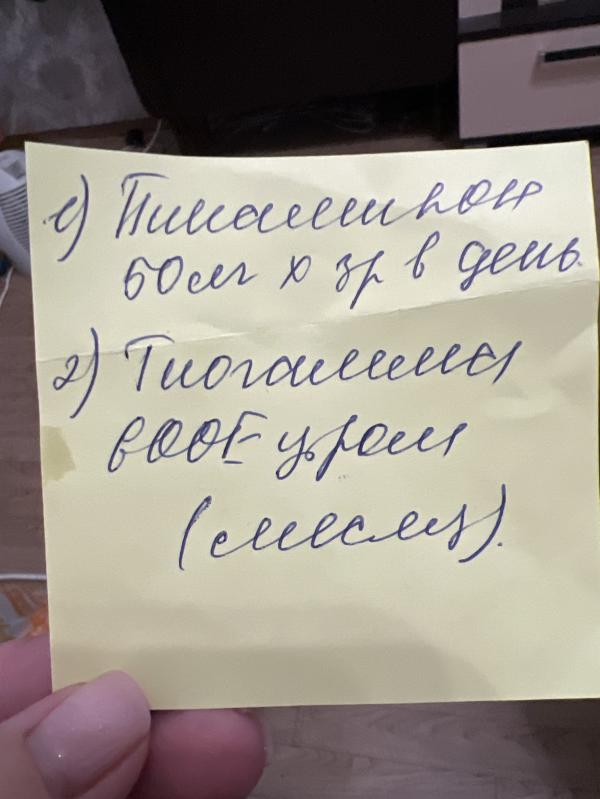 1) Пикамилон
50мг х 3р в день.
2) Тиогамма
600Е утром
(месяц).